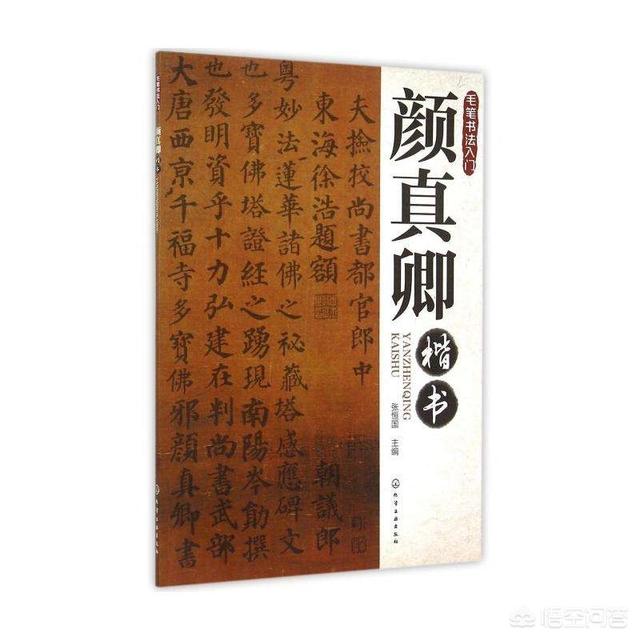 毛笔书法入门
颜真卿
楷书
YANZHENQING
KAISHU
张恒国 主编
化学工业出版社
夫撿校尚書都官郎中
東海徐浩題額
朝議郎
粤妙法蓮華諸佛之秘藏塔感應碑文
也多寶佛塔證經之踴現南陽岑勛撰
也發明資乎十力弘建在判尚書武部
大唐西京千福寺多寶佛邪顏真卿書
毛笔书法入门
颜真卿
楷书
化学工业出版社
悟空问答